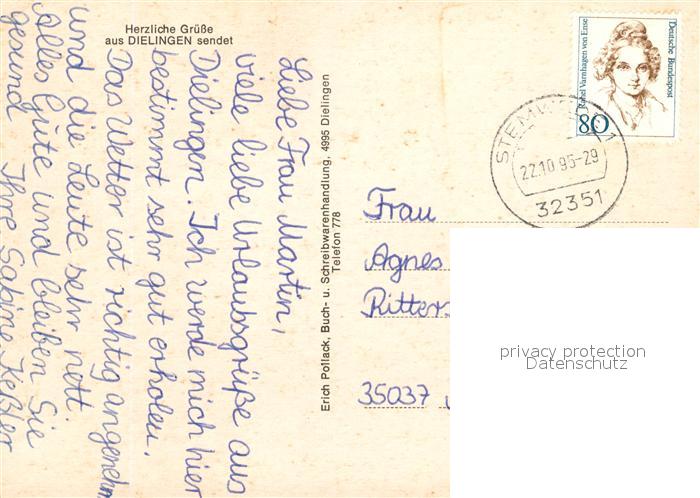 Herzliche Grüße
aus DIELINGEN sendet
Liebe Frau Martin,
viele liebe Urlaubsgrüße aus
Dielingen. Ich werde mich hier
bestimmt sehr gut erholen.
Das Wetter ist richtig angenehm
und die Leute sehr nett.
Alles Gute und bleiben Sie
gesund Ihre Sabine Keßler
Erich Pollack, Buch- u. Schreibwarenhandlung, 4995 Dielingen
Telefon 778
Rahel Varnhagen von Ense
Deutsche Bundespost
80
22.10.95-29
32351
Frau
Agnes
35037
privacy protection
Datenschutz